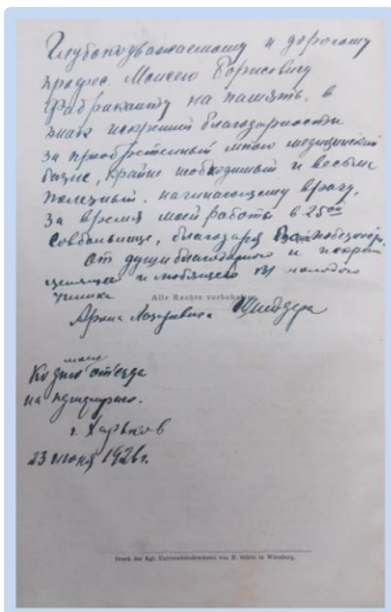 Глубокоуважаемому и дорогому
профес. Моисею Борисовичу
Фабриканту на память, в
знак искренней благодарности
за приобретенный мною медицинский
базис, крайне необходимый и весьма
полезный начинающему врачу,
за время моей работы в 25ой
совбольнице, благодаря
От души благодарного и искренне
ценящего и любящего молодого
ученика
Alle Rechte vorbehalten
Арона Лазаревича
Ко дню моего от'езда
на
г. Харьков
23 июня 1926г.
Druck der Kgl. Universitätsdruckerei von H. Stürtz in Würzburg.